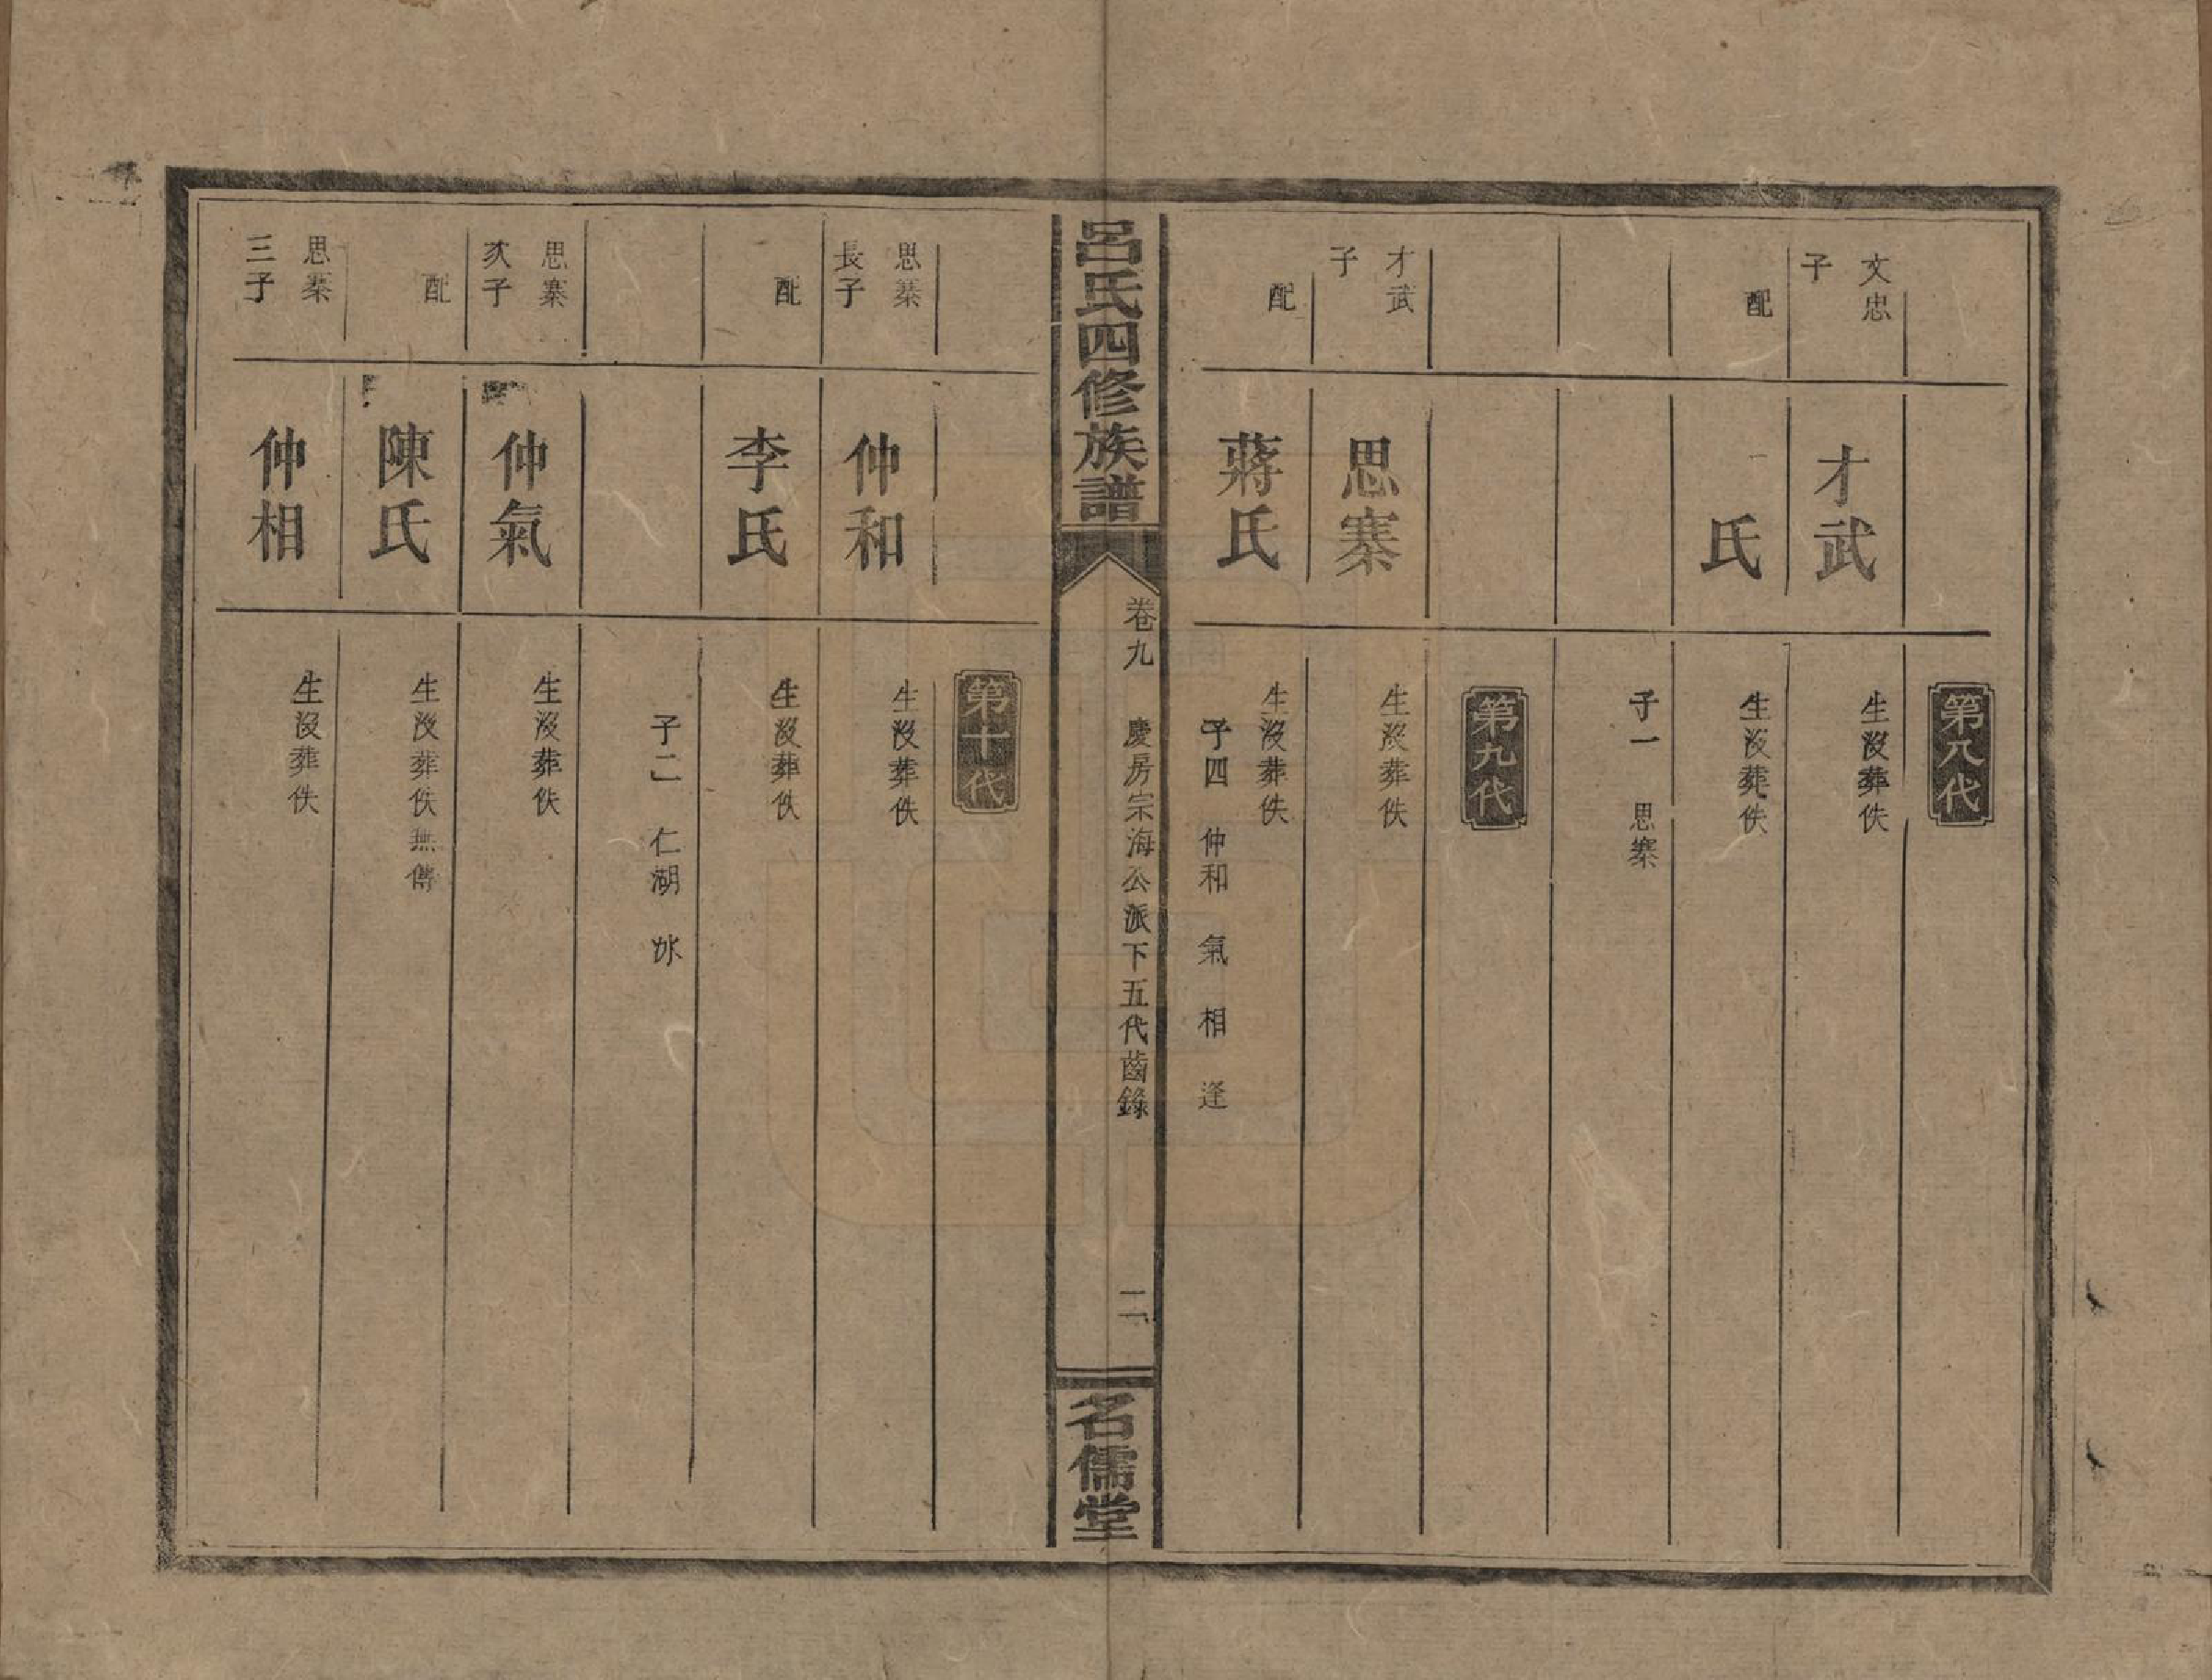 第八代
文忠子
才武
生沒葬佚
配
氏
生沒葬佚
子一 思寨
第九代
才武子
思寨
生沒葬佚
配
蔣氏
生沒葬佚
子四 仲和 氣 相 逢
呂氏四修族譜
卷九 慶房宗海公派下五代齒錄
二
名儒堂
第十代
思寨長子
仲和
生沒葬佚
配
李氏
生沒葬佚
子二 仁湖
思寨次子
仲氣
生沒葬佚
配
陳氏
生沒葬佚無傳
思寨三子
仲相
生沒葬佚